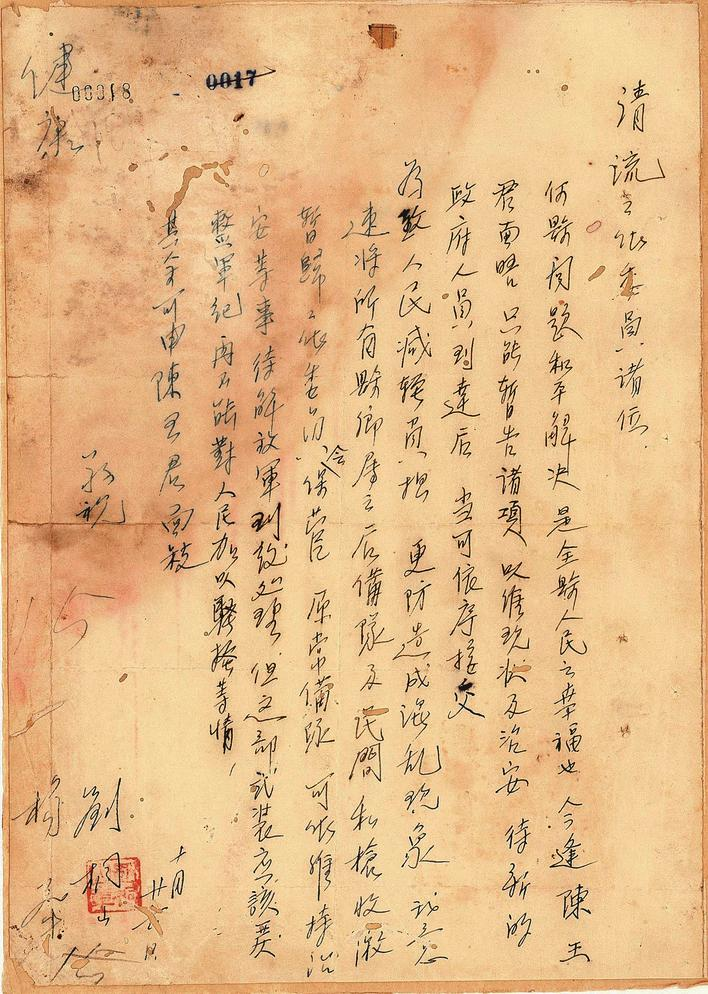 請
流工作委員諸位
何縣问題和平解决是全縣人民之幸福也今逢陳王
君面晤只能暫告諸項以維现状及治安待新的
政府人員到達后当可依序接交
為致人民减轻負担更防造成混乱现象我意
速将所有縣鄉屋之后備隊及民間私槍收激
暫歸工作委員會保管原常備队可作維持治
安等事待解放軍到後处理但這部武装应該要
整軍纪再不能對人民加以騷擾等情,
其余可由陳王君面談
敬祝
健
康
劉桐山
楊
十月廿日
00018
0017